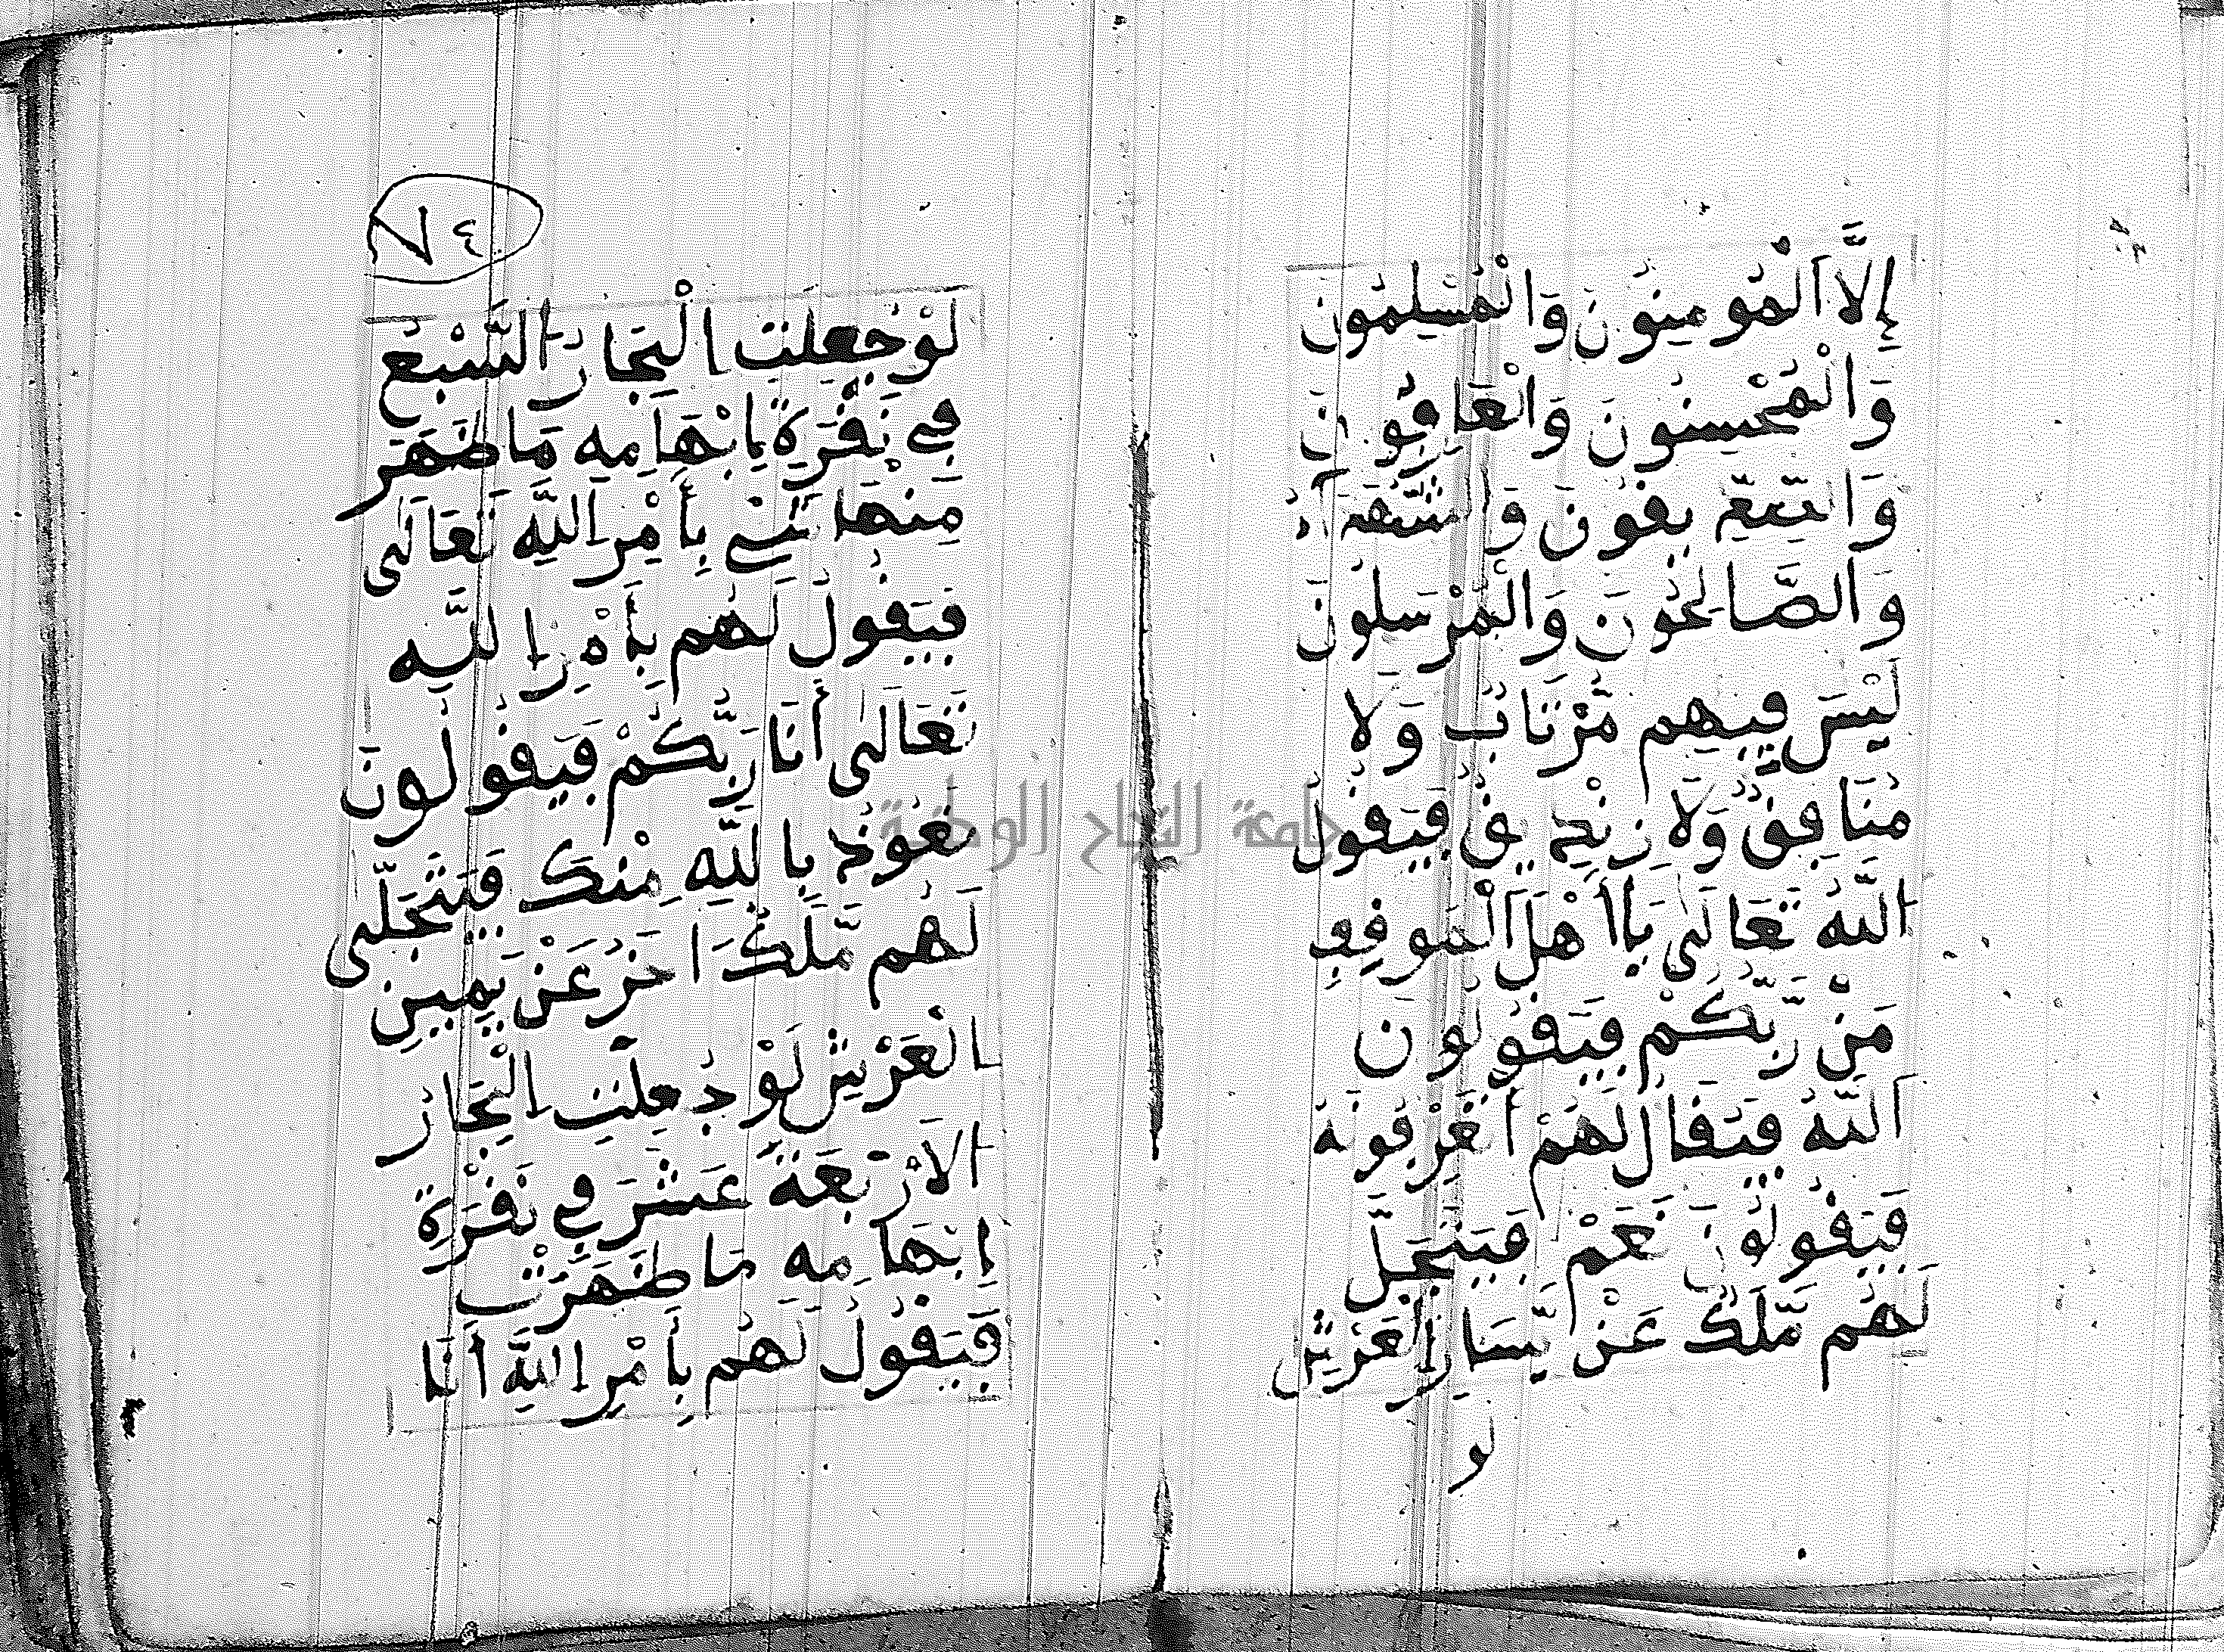 إِلاَّ الْمُومِنُونَ وَالْمُسْلِمُونَ
وَالْمُحْسِنُونَ وَالْعَارِفُونَ
وَالصِّدِّيقُونَ وَالشُّهَدَآءُ
وَالصَّالِحُونَ وَالْمُرْسَلُونَ
لَيْسَ فِيهِم مُّرْتَابٌ وَلَا
مُنَافِقٌ وَلَا زِنْدِيقٌ فَيَقُولُ
اللَّهُ تَعَالَى يَا أَهْلَ الْمَوْقِفِ
مَنْ رَّبُّكُمْ فَيَقُولُونَ
اللَّهُ فَيُقَالُ لَهُمْ أَتَعْرِفُونَهُ
فَيَقُولُونَ نَعَمْ فَيَتَجَلَّى
لَهُم مَّلَكٌ عَنْ يَّسَارِ الْعَرْشِ
لو
٧٤
لَوْ جُعِلَتِ الْبِحَارُ السَّبْعُ
فِي نُقْرَةِ إِبْهَامِهِ مَا ظَهَرَ
مِنْهَا شَيْءٌ بِأَمْرِ اللَّهِ تَعَالَى
فَيَقُولُ لَهُم بِأَمْرِ اللَّهِ
تَعَالَى أَنَا رَبُّكُمْ فَيَقُولُونَ
نَعُوذُ بِاللَّهِ مِنْكَ فَيَتَجَلَّى
لَهُم مَّلَكٌ اخَرُ عَنْ يَمِينِ
الْعَرْشِ لَوْ جُعِلَتِ الْبِحَارُ
الأَرْبَعَةَ عَشَرَ فِي نُقْرَةِ
إِبْهَامِهِ مَا ظَهَرَتْ
فَيَقُولُ لَهُم بِأَمْرِ اللَّهِ أَنَا
جامعة النجاح الوطنية